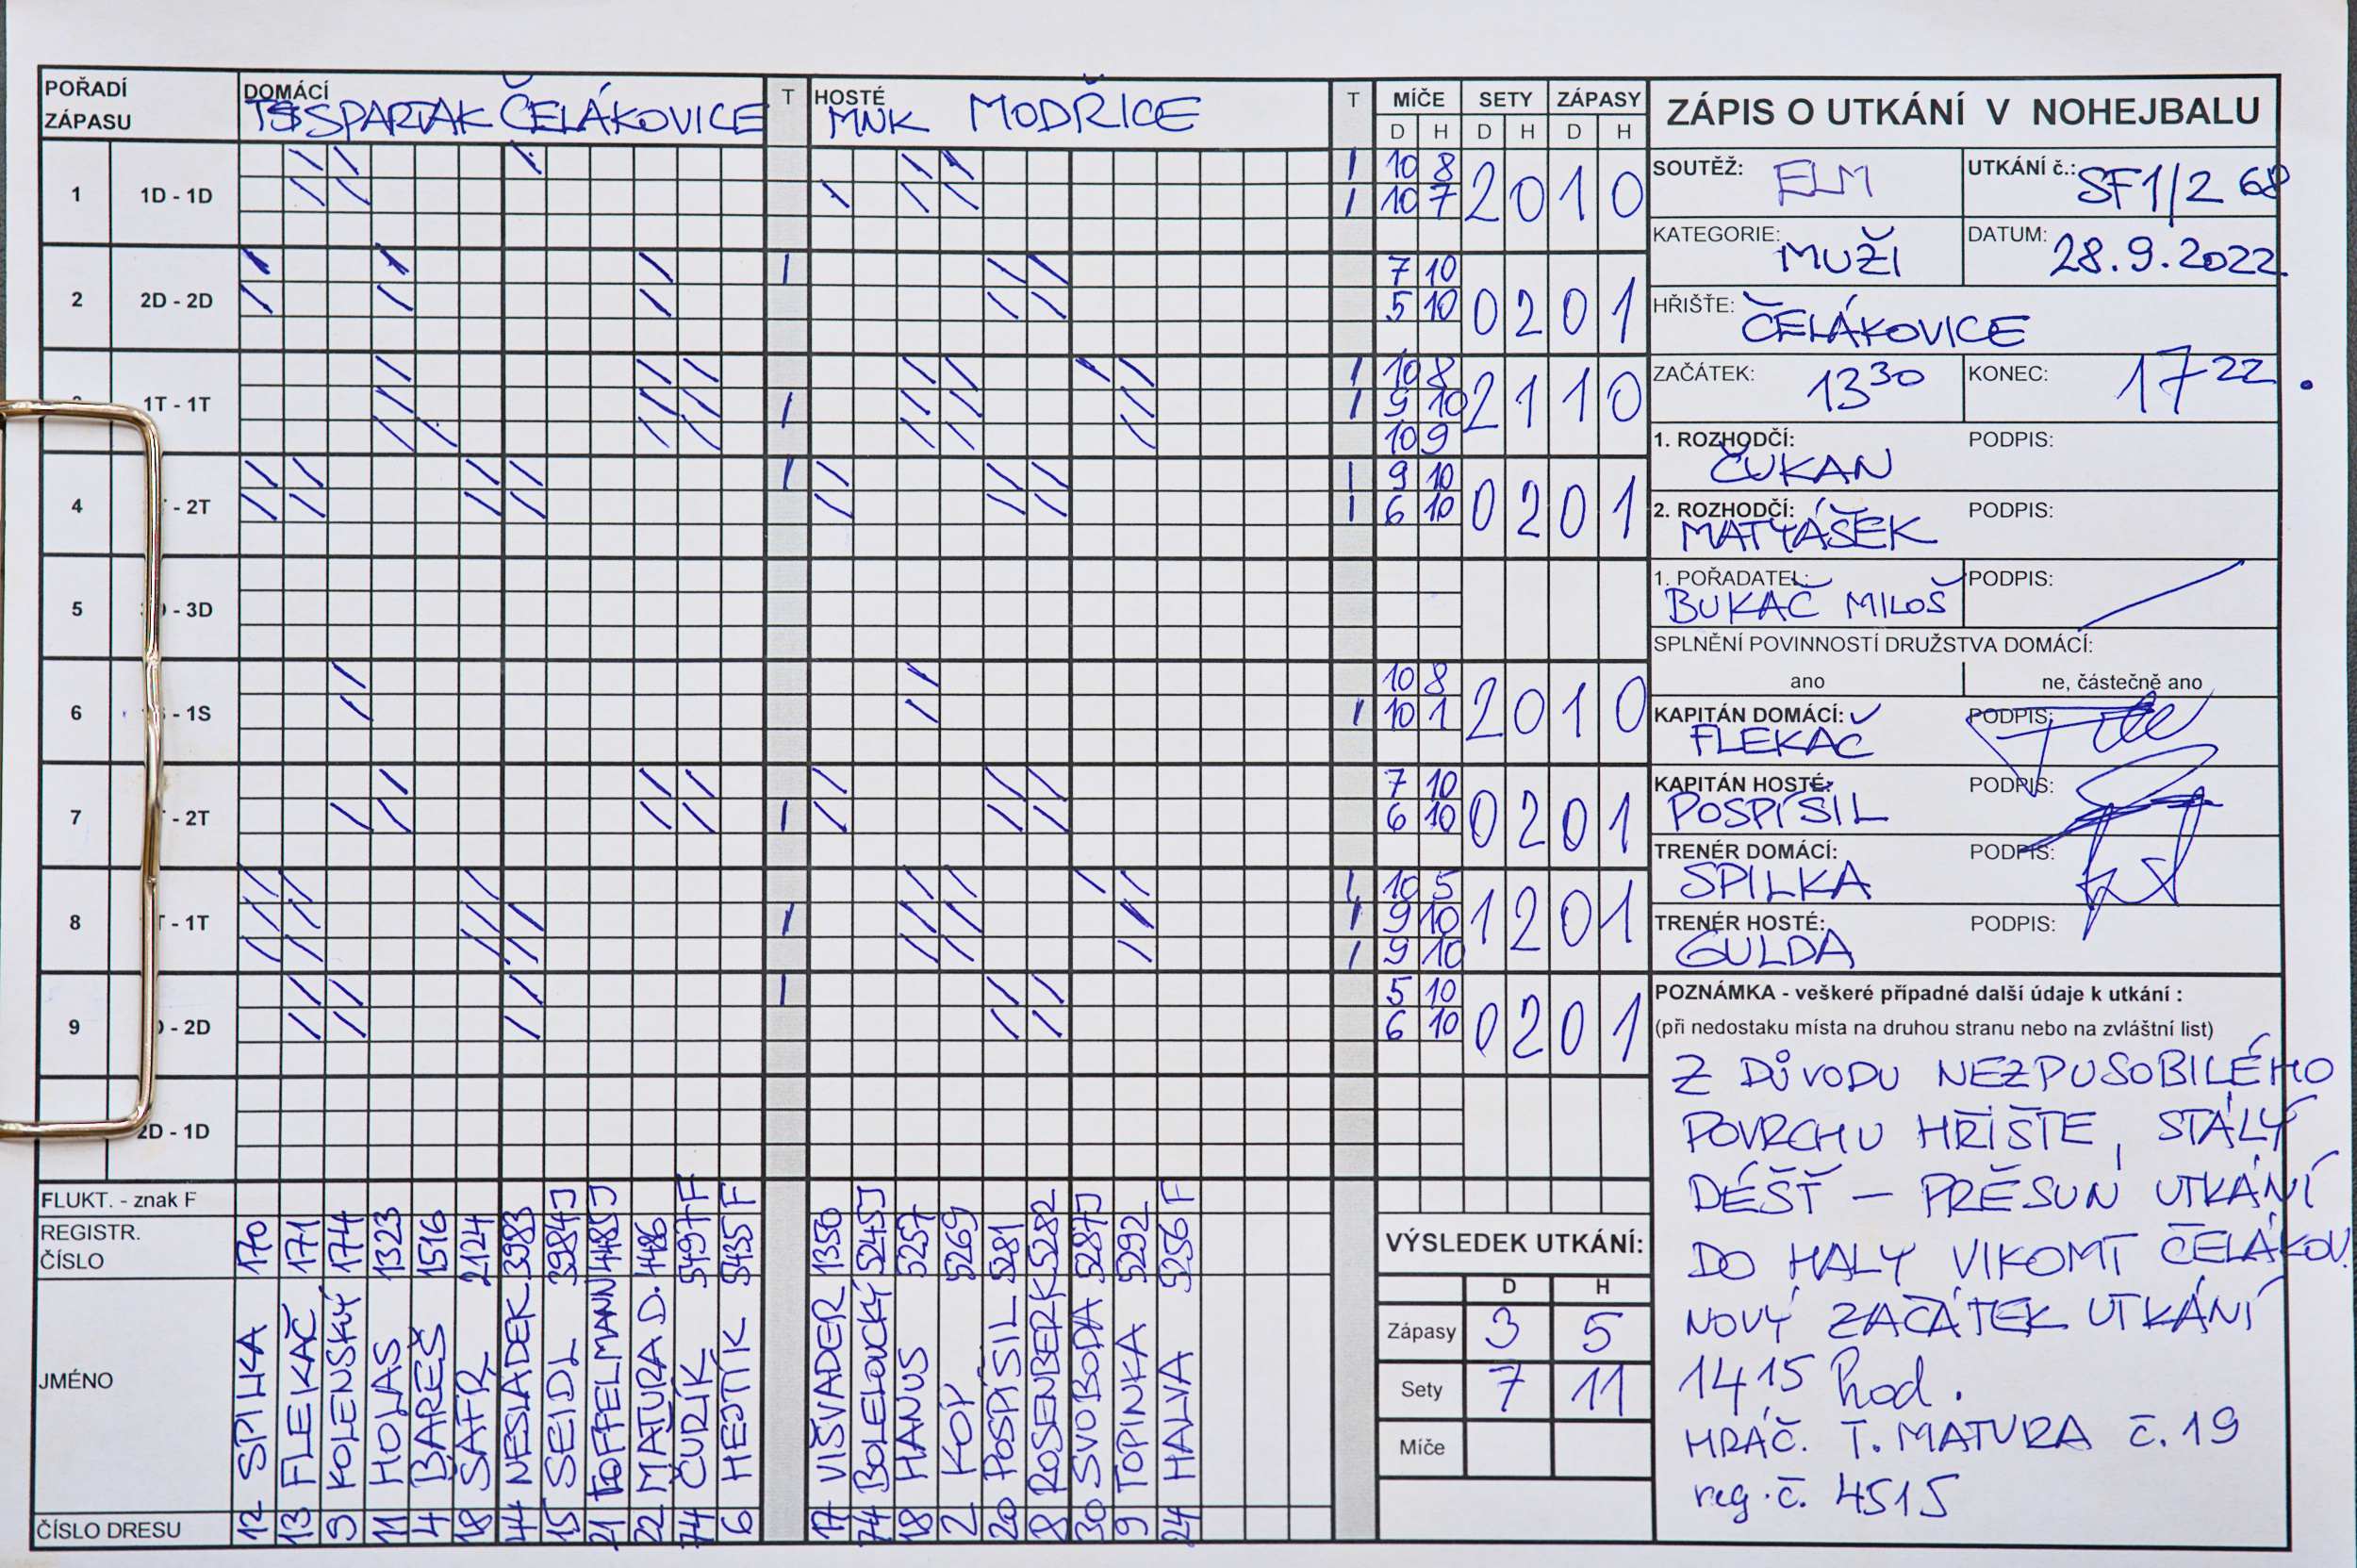 POŘADÍ ZÁPASU
DOMÁCÍ
TJ SPARTAK ČELÁKOVICE
T
HOSTÉ
MNK MODŘICE
T
MÍČE SETY ZÁPASY
D H D H D H
ZÁPIS O UTKÁNÍ V NOHEJBALU
SOUTĚŽ: ELM
UTKÁNÍ č.: SF1/2 68
KATEGORIE: MUŽI
DATUM: 28.9.2022
HŘIŠTĚ: ČELÁKOVICE
ZAČÁTEK: 13 30
KONEC: 17 22.
1. ROZHODČÍ: ČUKAN
PODPIS:
2. ROZHODČÍ: MATYÁŠEK
PODPIS:
1. POŘADATEL: BUKAČ MILOŠ
PODPIS:
SPLNĚNÍ POVINNOSTÍ DRUŽSTVA DOMÁCÍ:
ano
ne, částečně ano
KAPITÁN DOMÁCÍ: FLEKAČ
PODPIS:
KAPITÁN HOSTÉ: POSPÍŠIL
PODPIS:
TRENÉR DOMÁCÍ: SPILKA
PODPIS:
TRENÉR HOSTÉ: GULDA
PODPIS:
POZNÁMKA - veškeré případné další údaje k utkání :
(při nedostaku místa na druhou stranu nebo na zvláštní list)
Z DŮVODU NEZPUSOBILÉHO
POVRCHU HŘIŠTE, STÁLÝ
DÉŠŤ – PŘESUN UTKÁNÍ
DO HALY VIKOMT ČELÁKOV.
NOVÝ ZAČÁTEK UTKÁNÍ
14 15 hod.
HRÁČ. T. MATURA č. 19
reg. č. 4515
1 1D - 1D
10 8
10 7
2 0 1 0
2 2D - 2D
7 10
5 10
0 2 0 1
1T - 1T
10 8
9 10
10 9
2 1 1 0
4 - 2T
9 10
6 10
0 2 0 1
5 - 3D
6 - 1S
10 8
10 1
2 0 1 0
7 - 2T
7 10
6 10
0 2 0 1
8 - 1T
10 5
9 10
9 10
1 2 0 1
9 - 2D
5 10
6 10
0 2 0 1
2D - 1D
FLUKT. - znak F
REGISTR. ČÍSLO
JMÉNO
ČÍSLO DRESU
12 SPILKA 170
13 FLEKAČ 171
3 KOLENSKÝ 174
11 HOLAS 1323
4 BAREŠ 1516
18 ŠAFR 2124
44 NESLÁDEK 3983
15 SEIDL 3984J
21 TOFFELMANN 4485J
22 MATURA D. 4486
74 ČUŘÍK 5497F
6 HEJTÍK 5435F
17 VIŠVADER 1350
74 BOLELOUCKÝ 5245J
18 HANUS 5257
2 KOP 5269
20 POSPÍŠIL 5281
8 ROSENBERK 5282
30 SVOBODA 5287J
9 TOPINKA 5292
24 HALVA 5256F
VÝSLEDEK UTKÁNÍ:
D H
Zápasy 3 5
Sety 7 11
Míče